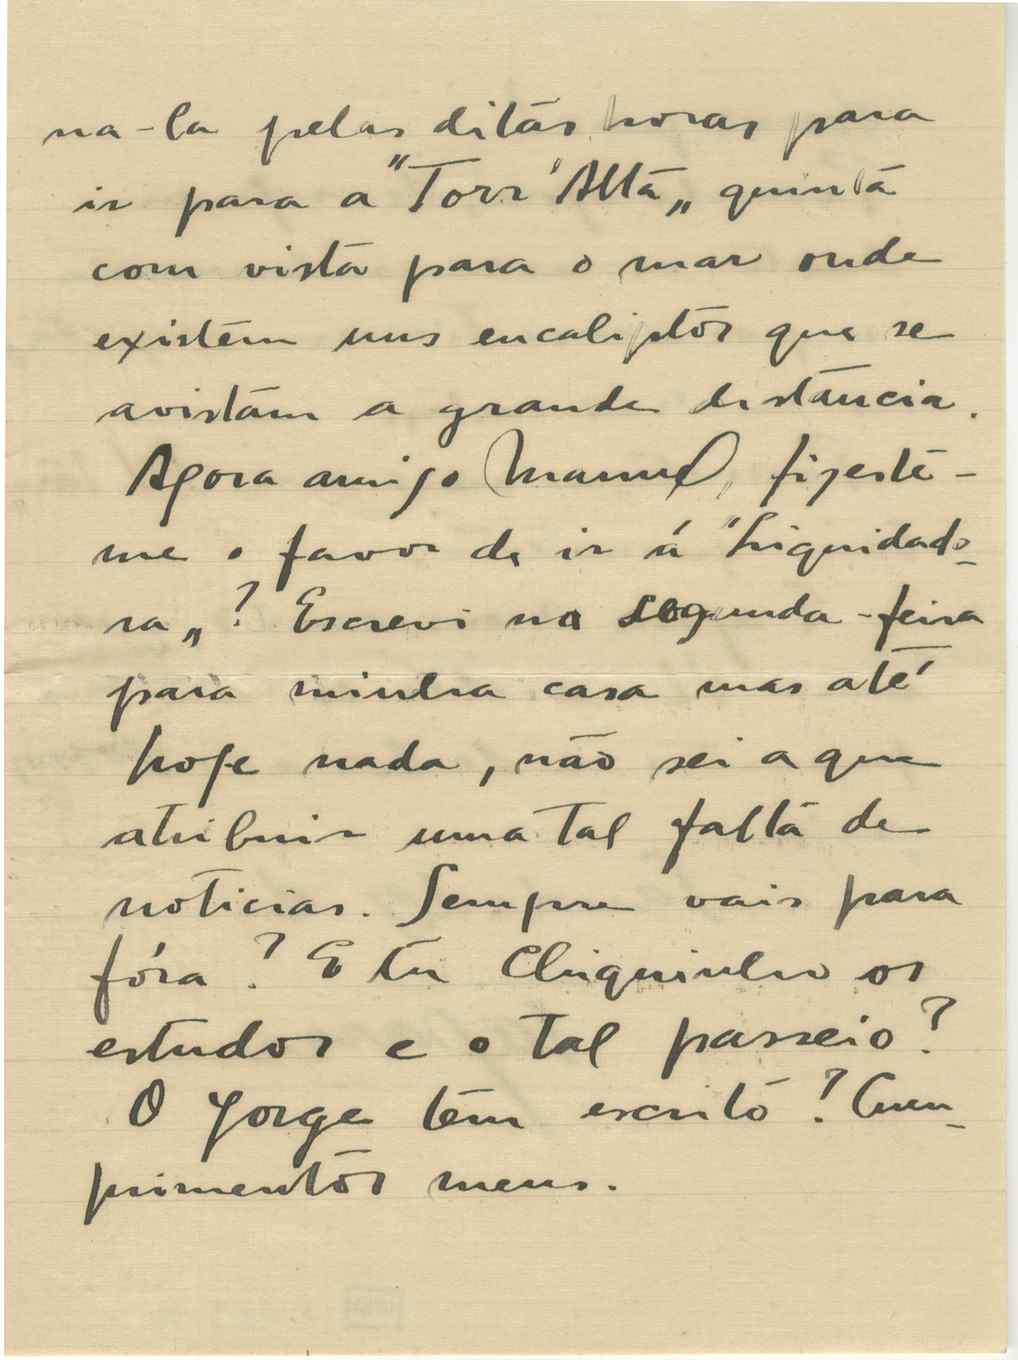 na-la pelas ditas horas para
ir para a "Torr'Alta„ quinta
com vista para o mar onde
existem uns eucaliptos que se
avistam a grande distância.
Agora amigo Manuel, fizeste-
me o favor de ir á "Liquidado-
ra„? Escrevi na segunda-feira
para minha casa mas até
hoje nada, não sei a que
atribuir uma tal falta de
noticias. Sempre vais para
fóra? E tu Chiquinho os
estudos e o tal passeio?
O Jorge tem escrito? Cum-
primentos meus.